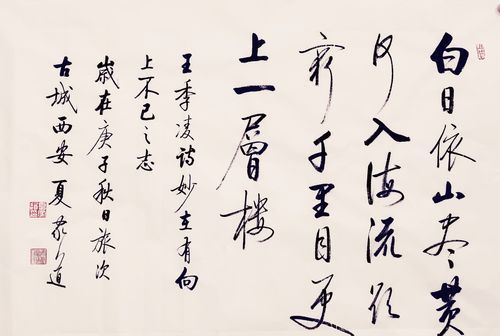 白日依山尽黄
河入海流欲
穷千里目更
上一層楼
王季凌诗妙在有向
上不已之志
歲在庚子秋日旅次
古城西安 夏 道